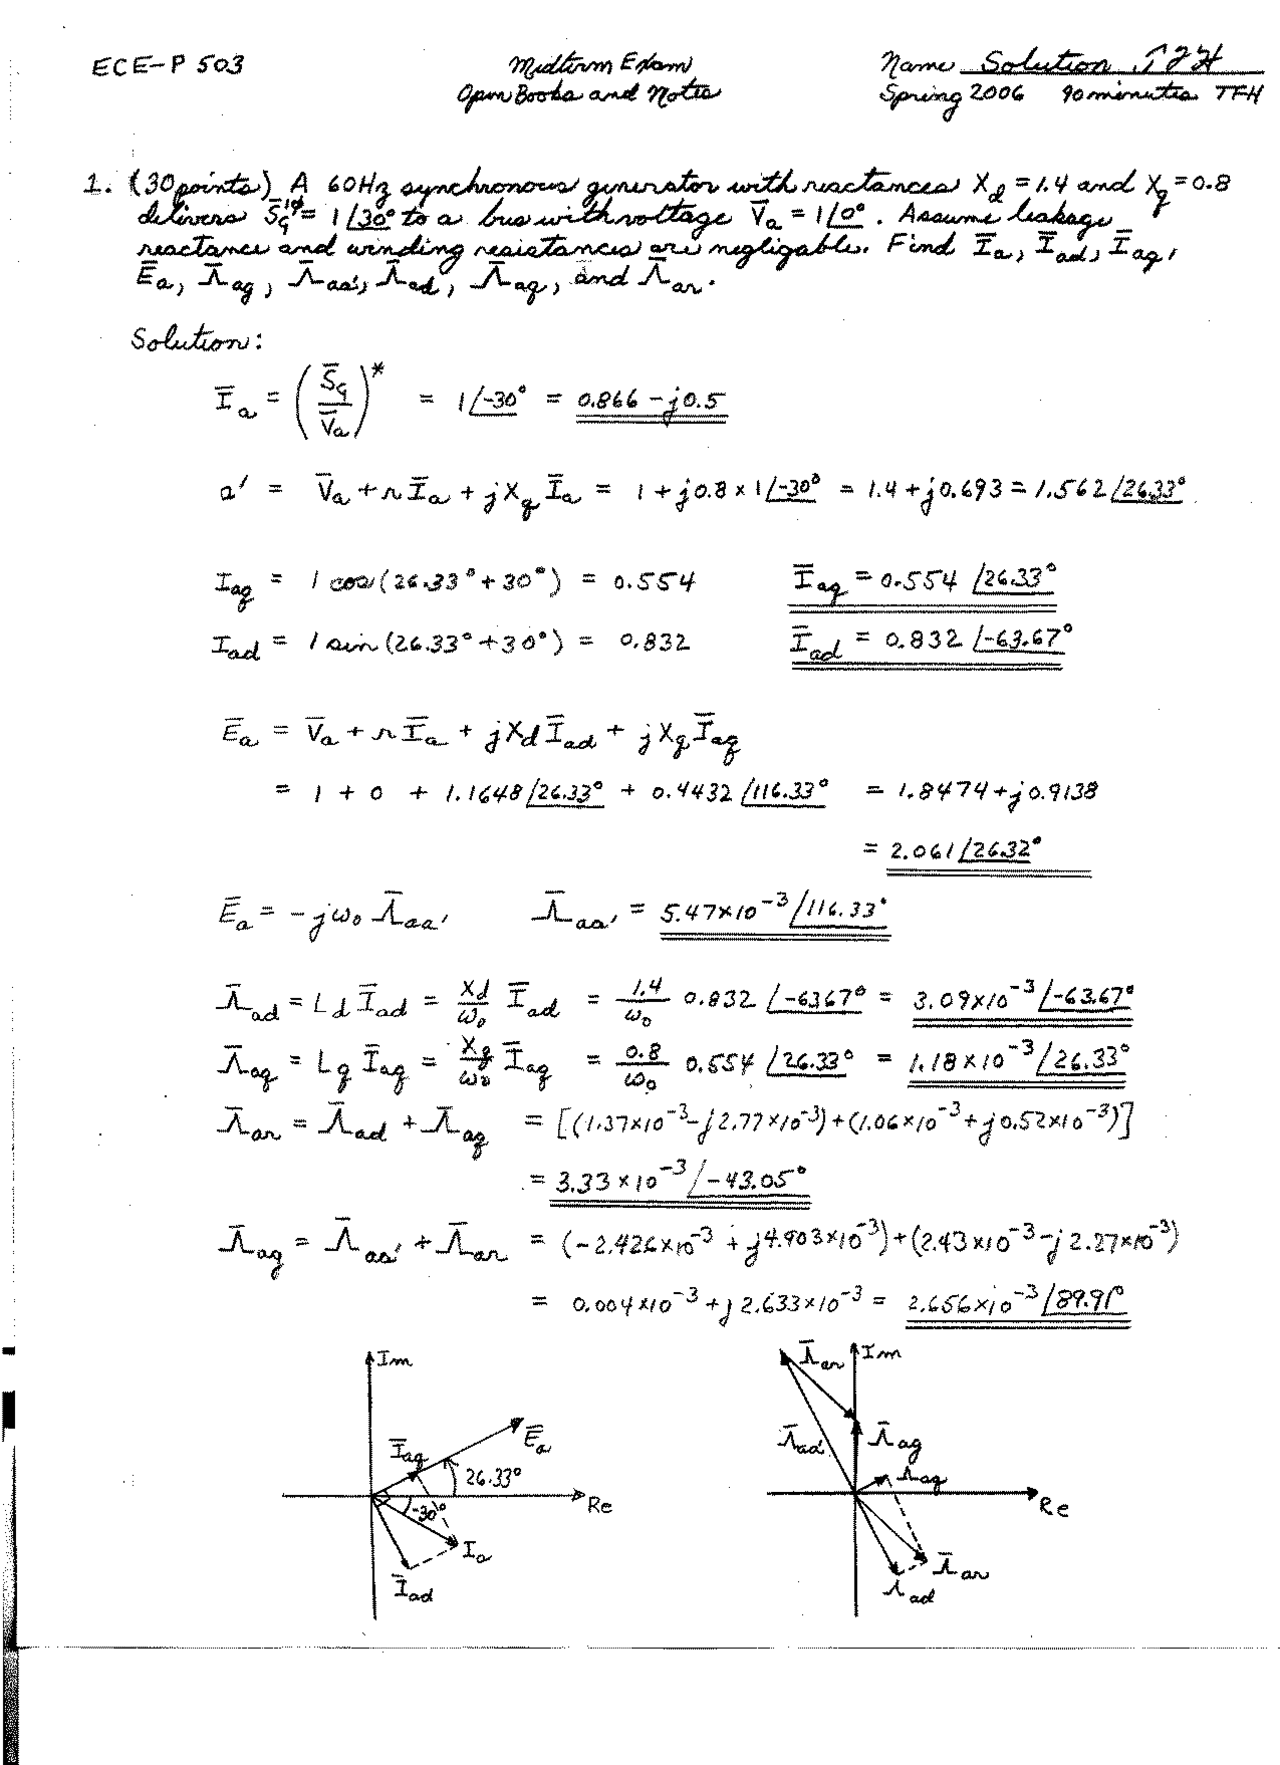 ECE-P 503
Midterm Exam
Open Books and Notes
Name Solution TFH
Spring 2006 90 minutes TFH
1. (30 points) A 60Hz synchronous generator with reactances X_d = 1.4 and X_q = 0.8
delivers S̄_G^{1φ} = 1/30° to a bus with voltage V̄_a = 1/0°. Assume leakage
reactance and winding resistances are negligable. Find Ī_a, Ī_ad, Ī_aq,
Ē_a, Λ̄_ag, Λ̄_aa', Λ̄_ad, Λ̄_aq, and Λ̄_ar.
Solution:
Ī_a = (S̄_G / V̄_a)* = 1/-30° = 0.866 - j0.5
a' = V̄_a + rĪ_a + jX_q Ī_a = 1 + j0.8 × 1/-30° = 1.4 + j0.693 = 1.562/26.33°
I_aq = 1 cos(26.33° + 30°) = 0.554 Ī_aq = 0.554 /26.33°
I_ad = 1 sin(26.33° + 30°) = 0.832 Ī_ad = 0.832 /-63.67°
Ē_a = V̄_a + rĪ_a + jX_d Ī_ad + jX_q Ī_aq
= 1 + 0 + 1.1648/26.33° + 0.4432/116.33° = 1.8474 + j0.9138
= 2.061/26.32°
Ē_a = -jω₀ Λ̄_aa' Λ̄_aa' = 5.47×10⁻³/116.33°
Λ̄_ad = L_d Ī_ad = X_d/ω₀ Ī_ad = 1.4/ω₀ 0.832 /-63.67° = 3.09×10⁻³/-63.67°
Λ̄_aq = L_q Ī_aq = X_q/ω₀ Ī_aq = 0.8/ω₀ 0.554 /26.33° = 1.18×10⁻³/26.33°
Λ̄_ar = Λ̄_ad + Λ̄_aq = [(1.37×10⁻³ - j2.77×10⁻³) + (1.06×10⁻³ + j0.52×10⁻³)]
= 3.33×10⁻³/-43.05°
Λ̄_ag = Λ̄_aa' + Λ̄_ar = (-2.426×10⁻³ + j4.903×10⁻³) + (2.43×10⁻³ - j2.27×10⁻³)
= 0.004×10⁻³ + j2.633×10⁻³ = 2.656×10⁻³/89.91°
Im
Ē_a
Ī_aq
26.33°
Re
-30°
I_a
Ī_ad
Λ̄_ar
Im
Λ̄_aa'
Λ̄_ag
Λ_aq
Re
Λ̄_ar
Λ_ad